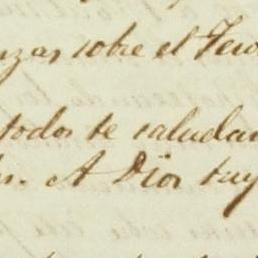 nzas sobre el Teso
todos te saludan
s. A Dios tuy